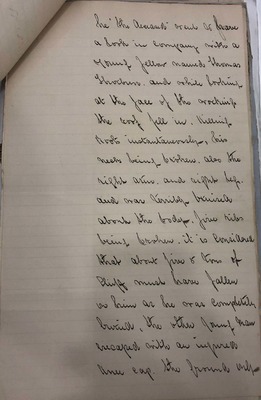 he the deceased went to have
a look in company with a
young fellow named Thomas
and while looking
at the face of the workings
the roof fell in. killing
Root instantaneously, his
neck being broken. also the
right arm. and right leg.
and was terribly bruised
about the body, five ribs
being broken. it is considered
that about five tons of
stuff must have fallen
on him as he was completely
buried, the other young man
escaped with an injured
knee cap. the ground